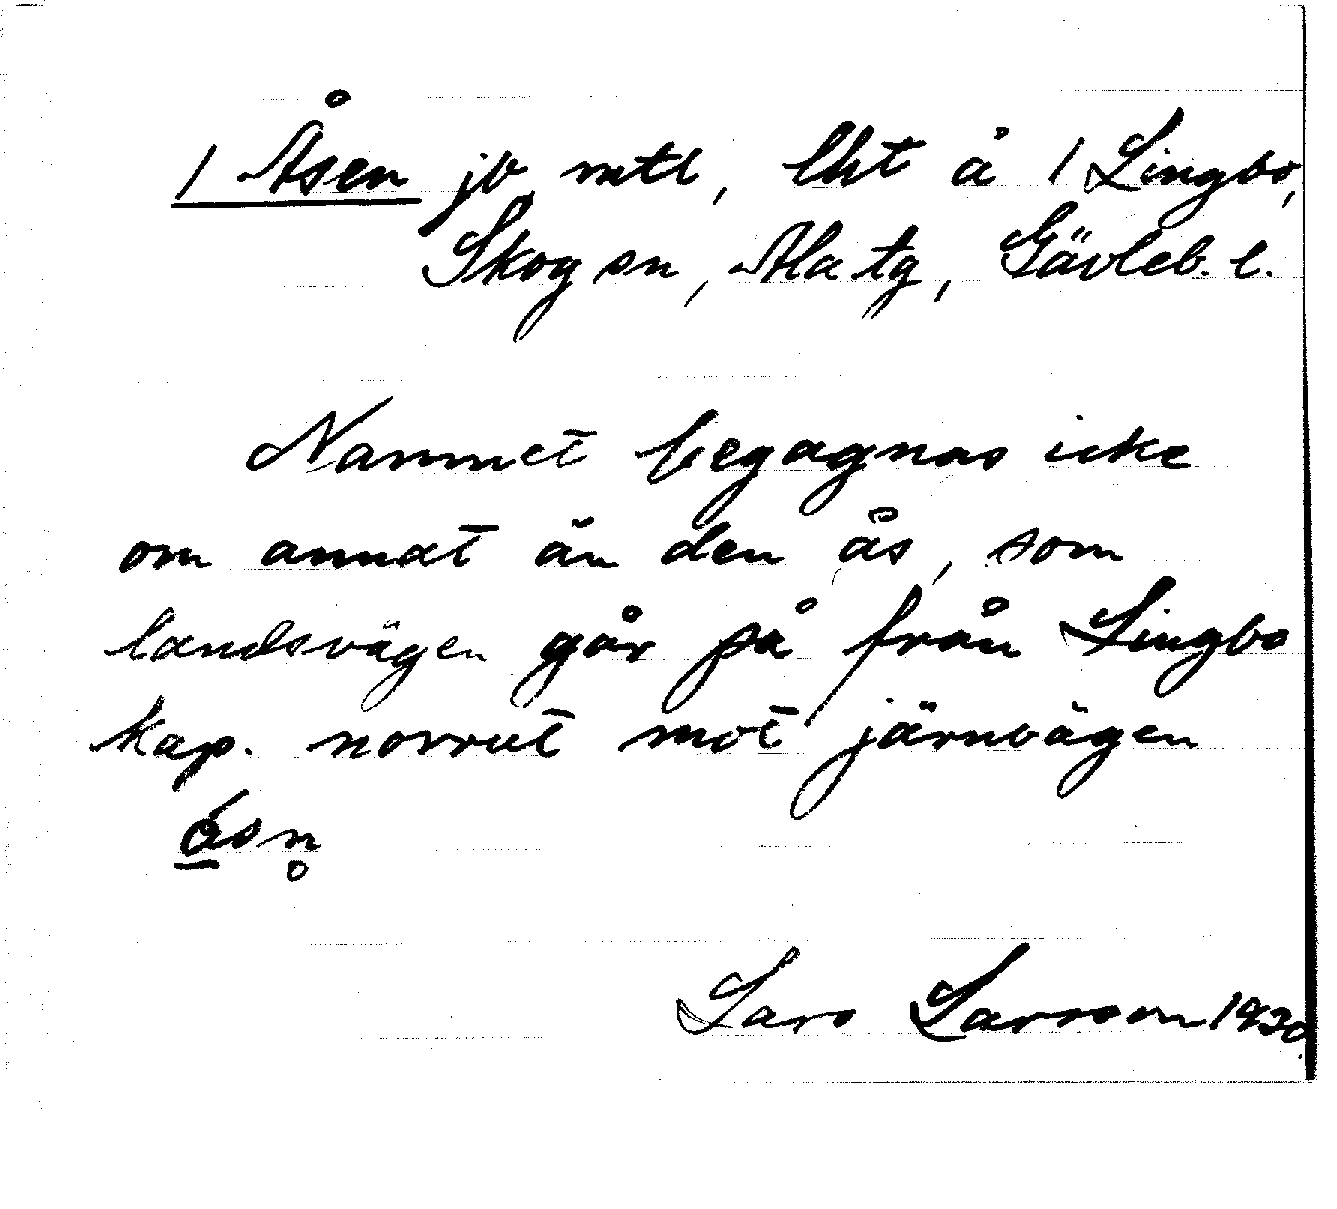 1 Åsen jb, mtl, lht å 1 Lingbo,
Skog sn, Ala tg, Gävleb. l.
Namnet begagnas icke
om annat än den ås, som
landsvägen går på från Lingbo
kap. norrut mot järnvägen
Lars Larsson 1930.